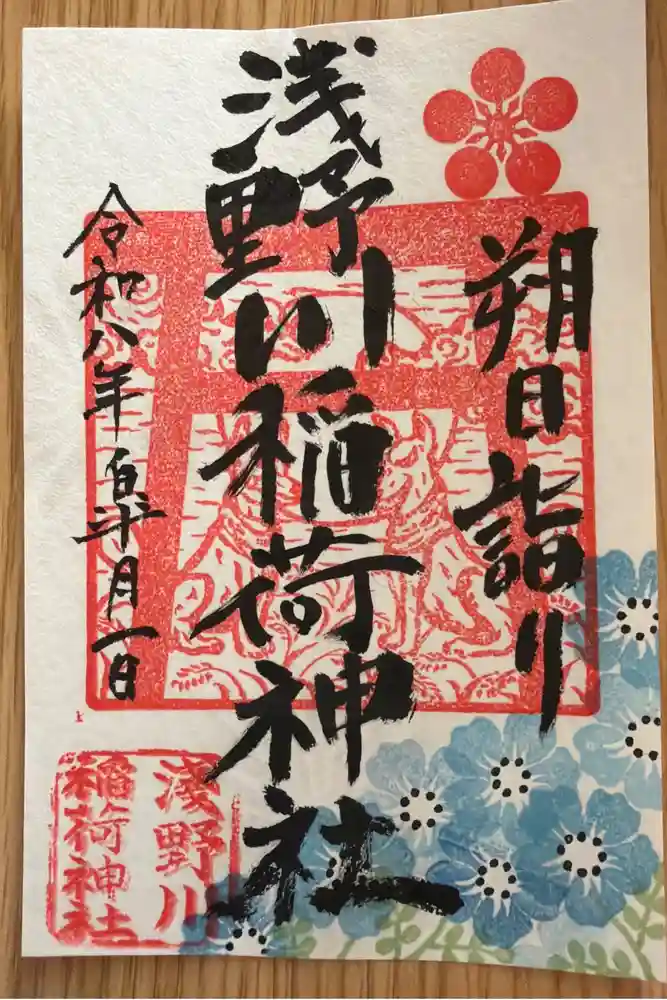 朔日詣り
浅野川稲荷神社
令和八年皐月一日
淺野川
稲荷神社